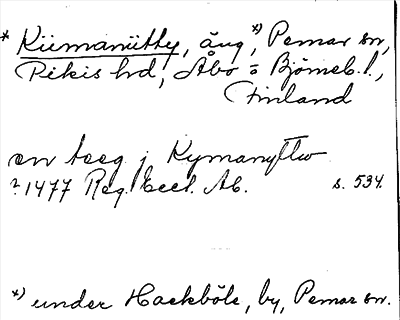 * Kiimaniitty, äng *), Pemar sn,
Pikis hd, Åbo o Björneb. l.,
Finland
en teeg j Kymanyttw
? 1477 Reg. Eccl. Ab. s. 534.
*) under Hackböle, by, Pemar sn.